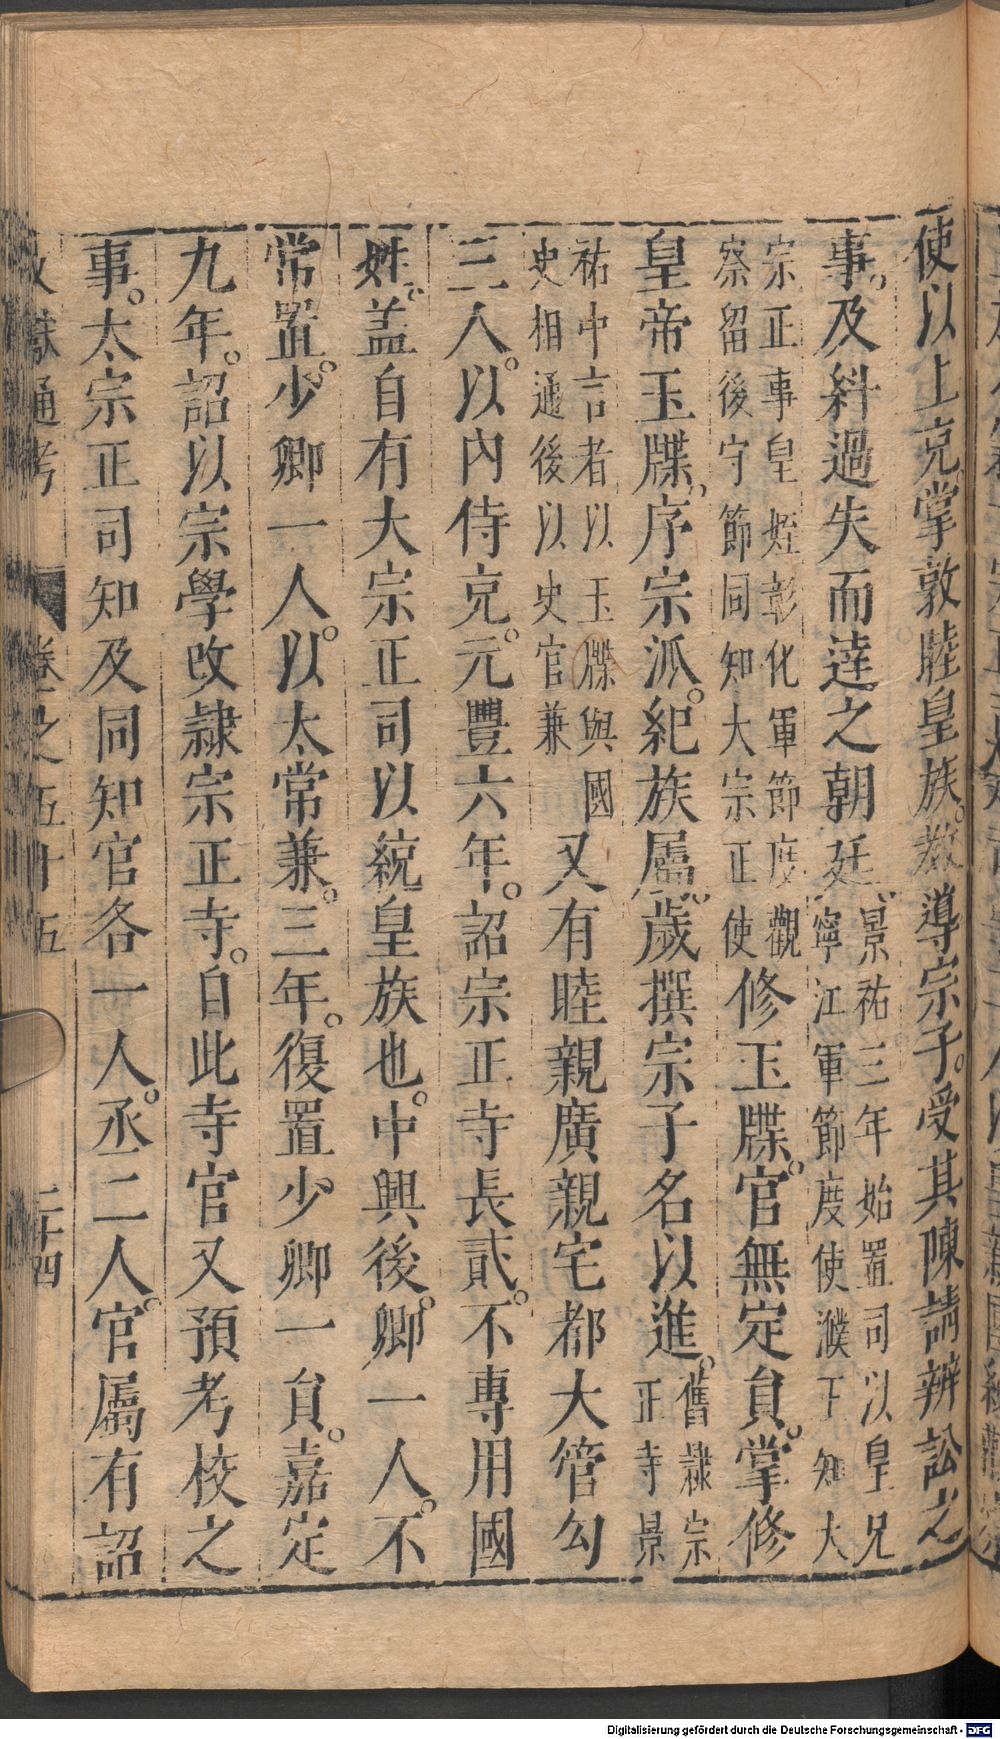 使以上克掌敦睦皇族教導宗子受其陳請辨訟之
事及糾過失而達之朝廷景祐三年始置司以皇兄寧江軍節度使濮王知大
宗正事皇姪彰化軍節度觀察留後守節同知大宗正使修玉牒官無定員掌修
皇帝玉牒序宗派紀族屬歲撰宗子名以進舊隸宗正寺景
祐中言者以玉牒與國史相通後以史官兼又有睦親廣親宅都大管勾
三人以內侍克元豐六年詔宗正寺長貳不專用國
姓盖自有大宗正司以統皇族也中興後卿一人不
常置少卿一人以太常兼三年復置少卿一員嘉定
九年詔以宗學改隸宗正寺自此寺官又預考校之
事太宗正司知及同知官各一人丞二人官屬有詔
文獻通考 卷之五十五 二十四
Digitalisierung gefördert durch die Deutsche Forschungsgemeinschaft - DFG